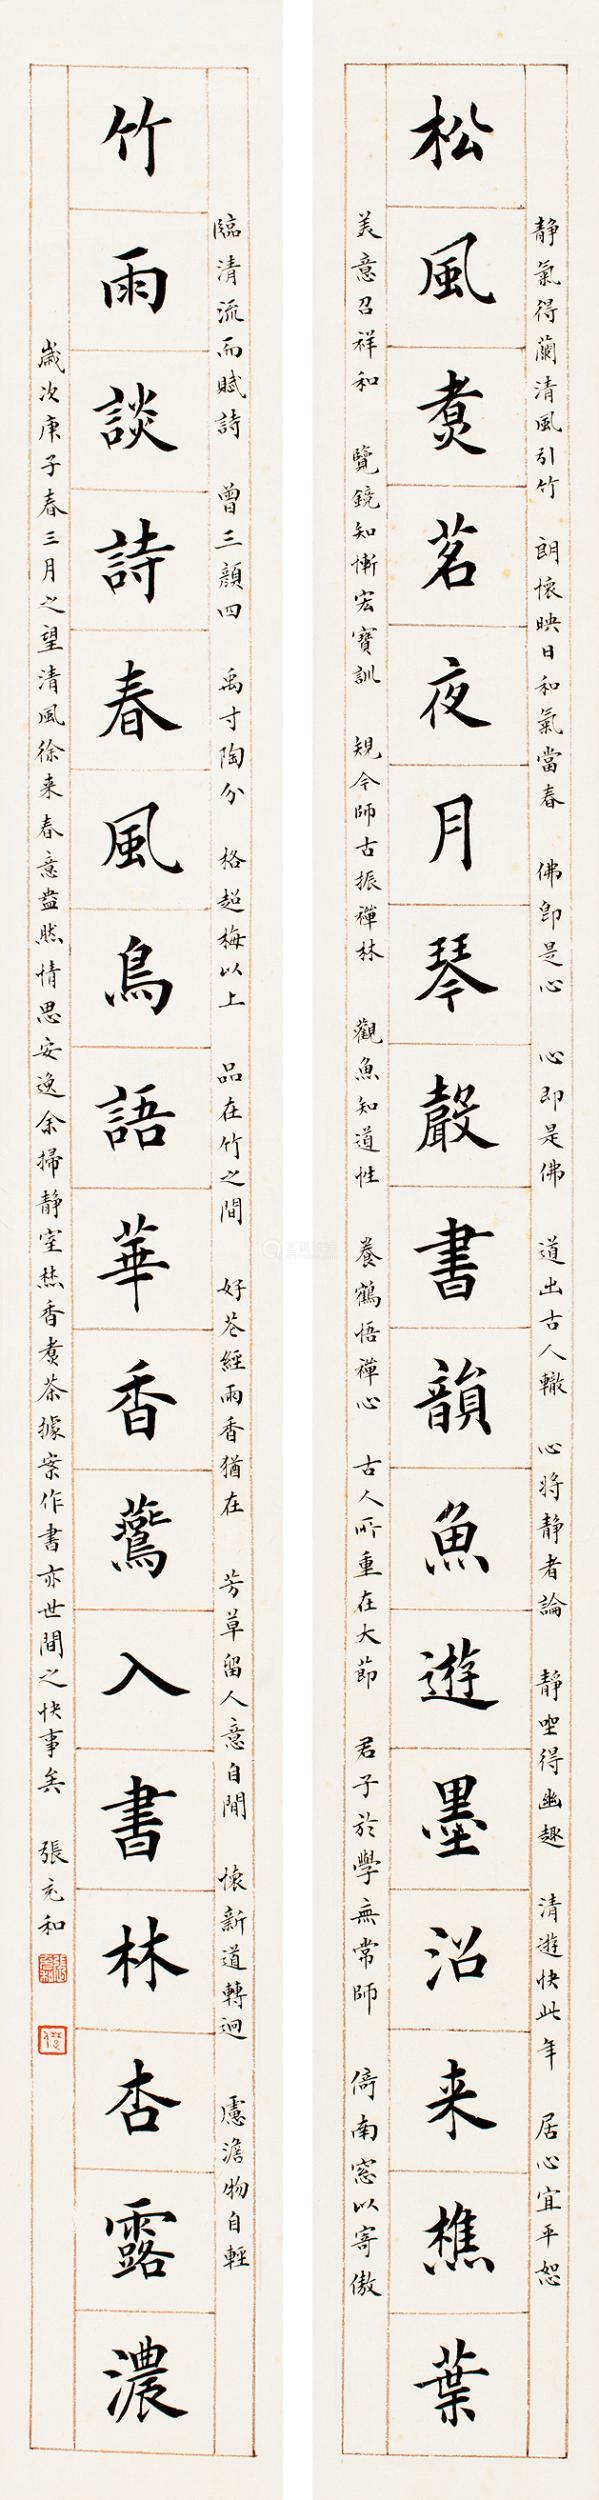 靜氣得蘭清風引竹 朗懷映日和氣當春 佛即是心 心即是佛 道出古人轍 心將靜者論 靜坐得幽趣 清遊快此年 居心宜平恕
松風煑茗夜月琴聲書韻魚遊墨沼来樵葉
美意召祥和 覽鏡知慚宏寶訓 規今師古振禪林 觀魚知道性 養鶴悟禪心 古人所重在大節 君子於學無常師 倚南窓以寄傲
臨清流而賦詩 曾三顏四 禹寸陶分 格超梅以上 品在竹之間 好花經雨香猶在 芳草留人意自閒 懷新道轉迥 慮澹物自輕
竹雨談詩春風鳥語華香鶯入書林杏露濃
歲次庚子春三月之望清風徐来春意盎然情思安逸余掃靜室焚香煑茶據案作書亦世間之快事矣 張充和